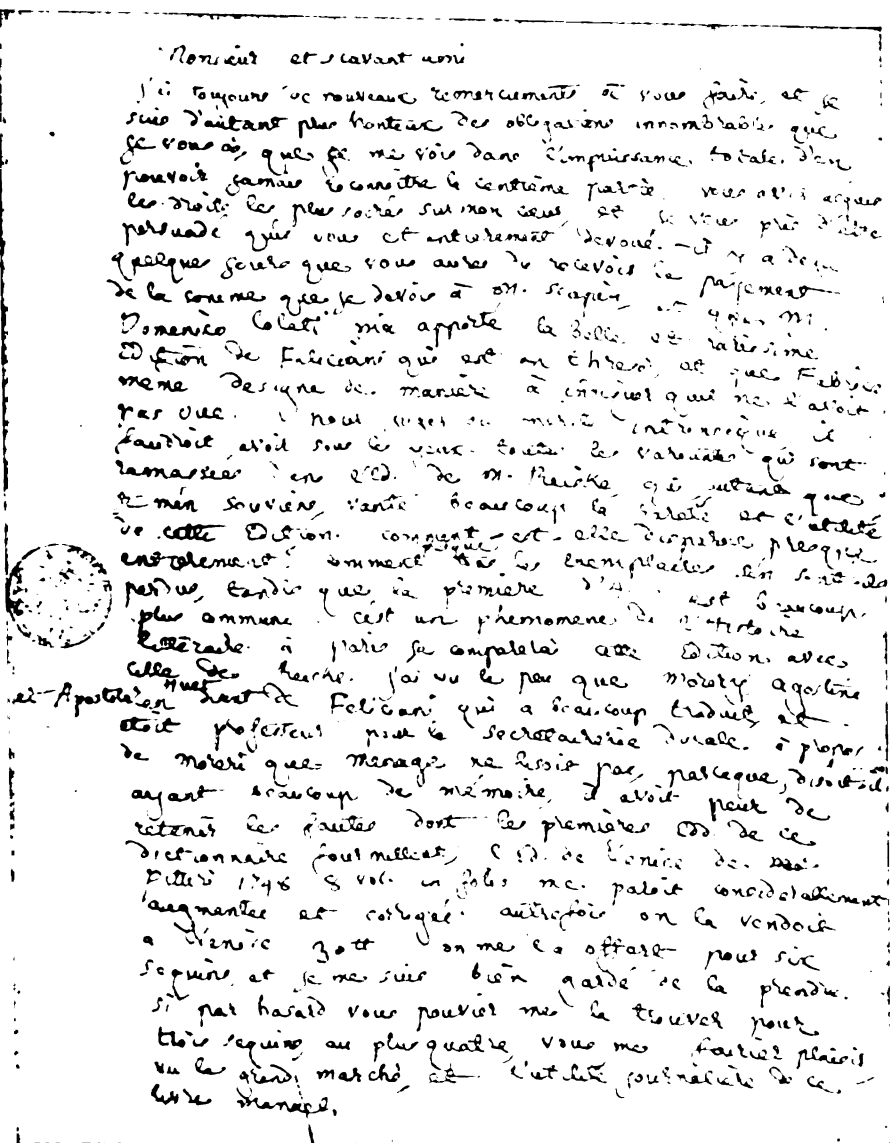 Monsieur et scavant ami
j'ai toujours de nouveaux remerciements à vous faire, et je
suis d'autant plus honteux des obligations innombrables que
je vous ai, que je me vois dans l'impuissance totale d'en
pouvoir jamais reconnoitre la centième partie. vous avez acquis
les droits les plus sacrés sur mon coeur, et je vous prie d'être
persuadé qu'il vous est entierement devoué. - il y a deja
quelques jours que vous aures du recevoir le payement
de la somme que je devois à M. Scapin, et que M.
Domenico Colati m'a apporté la belle et rarissime
Edition de Feliciani qui est un thresor, et que Fabrice
meme designe de maniere à insinuer qu'il ne l'avoit
pas vue. Pour juger du merite intrinseque il
faudroit avoir sous les yeux toutes les variantes qui sont
ramassées en l'Ed. de M. Reiske, qui autant que
je m'en souviens, vante beaucoup la rareté et l'utilité
de cette Edition. comment est-elle disparue presque
entierement? comment presque tous les exemplaires s'en sont-ils
perdus, tandis que la premiere d'A. est beaucoup
plus commune. c'est un phenomene de l'histoire
litteraire. à paris je comparerai cette Edition avec
celle de Reiske. j'ai vu le peu que Moreri, Agostini
et Apostolo, Huet en disent de Feliciani qui a beaucoup traduit, et
etoit professeur pour la secretairerie ducale. à propos
de moreri que menage ne lisoit pas, parceque, disoit-il,
ayant beaucoup de mémoire, il avoit peur de
retenir les fautes dont les premières Edd. de ce
dictionnaire fourmillent, l'Ed. de Venise de
Pitteri 1748 8 vol. in folio me paroit considerablement
augmentée et corrigée. autrefois on la vendoit
a Venise 30 tt on me l'a offert pour six
sequins, et je me suis bien gardé de la prendre.
si par hasard vous pouvier me la trouver pour
trois sequins, au plus quatre, vous me feriez plaisir
vu le grand marché, et l'utilité journaliere de ce
livre manuel.